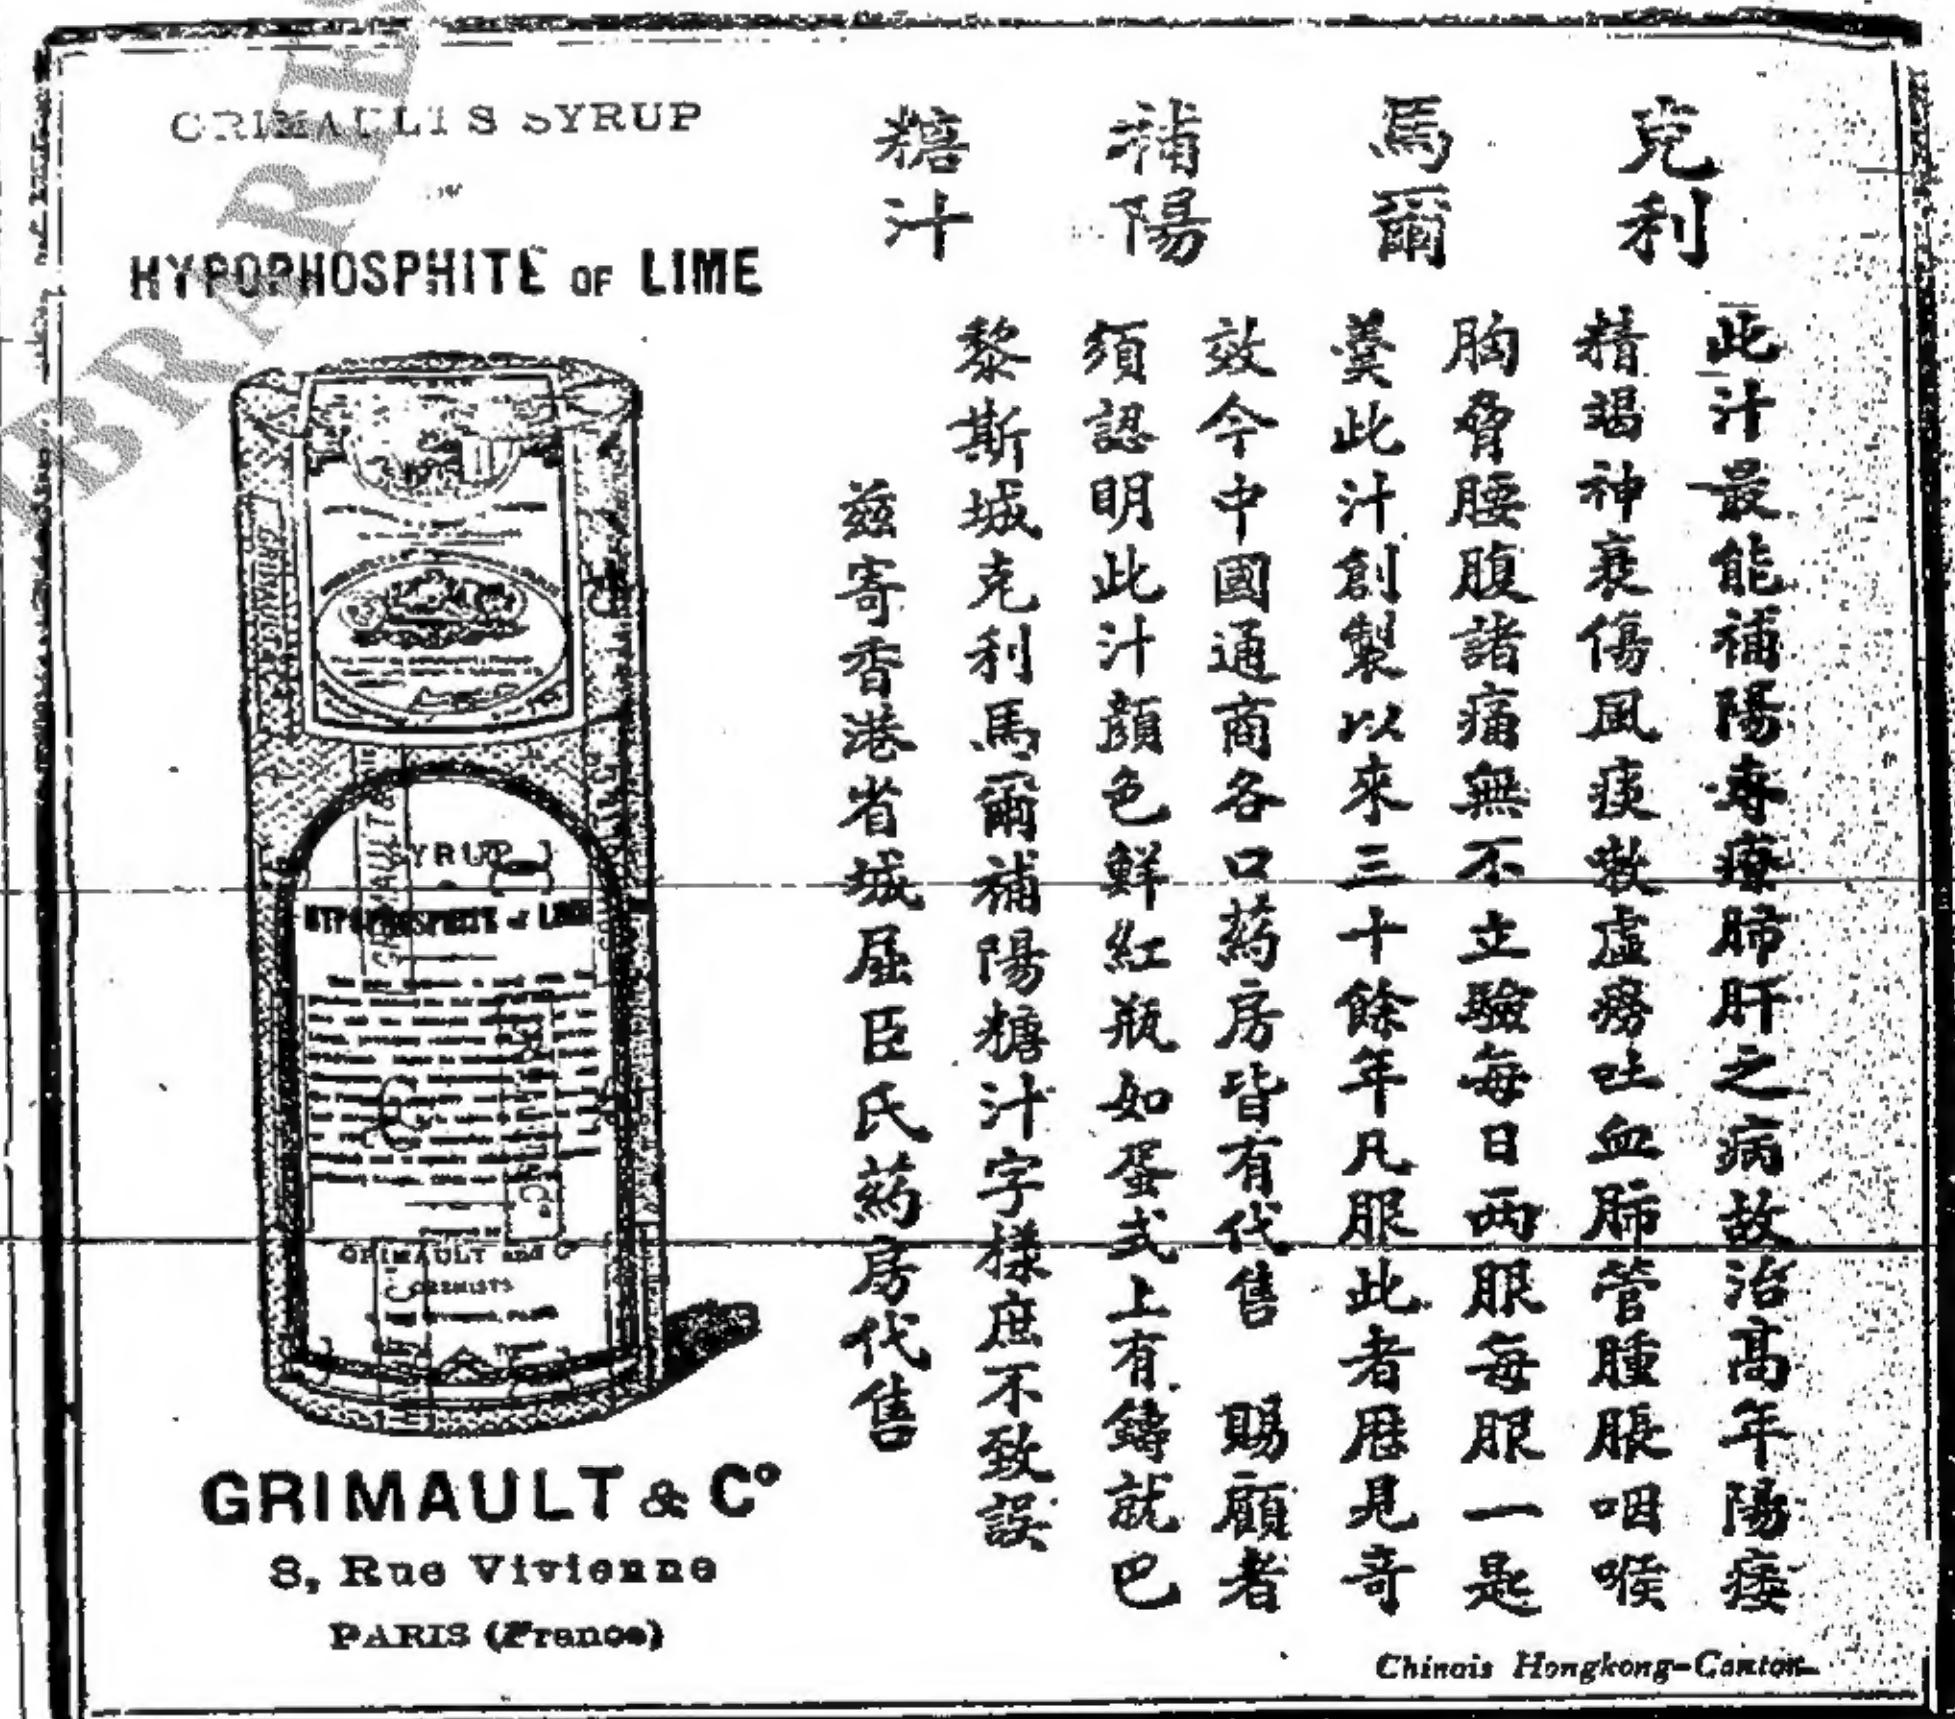 GRIMAULT'S SYRUP
HYPOPHOSPHITE OF LIME
SYRUP
HYPOPHOSPHITE of LIME
GRIMAULT and Co
CHEMISTS
GRIMAULT & Co
8, Rue Vivienne
PARIS (France)
克利
馬爾
補陽
糖汁
此汁最能補陽專療肺肝之病故治高年陽痿
精竭神衰傷風痰嗽虛癆吐血肺管腫脹咽喉
胸脅腰腹諸痛無不立驗每日兩服每服一匙
羹此汁創製以來三十餘年凡服此者歷見奇
效今中國通商各口葯房皆有代售 賜顧者
須認明此汁顏色鮮紅瓶如蛋式上有鑄就巴
黎斯城克利馬爾補陽糖汁字樣庶不致誤
茲寄香港省城屈臣氏葯房代售
Chinois Hongkong-Canton